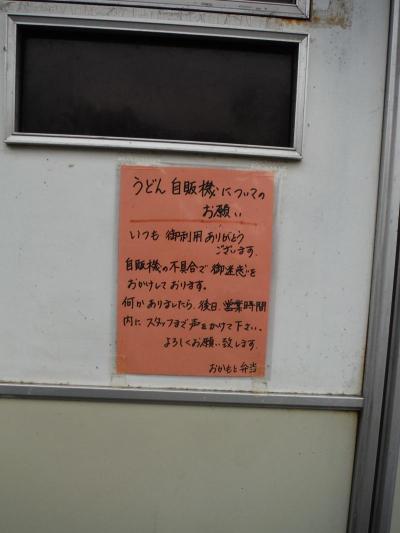 うどん自販機についての
お願い
いつも御利用ありがとう
ございます。
自販機の不具合で御迷惑を
おかけしております。
何かありましたら、後日、営業時間
内にスタッフまで声をかけて下さい。
よろしくお願い致します。
おかもと弁当